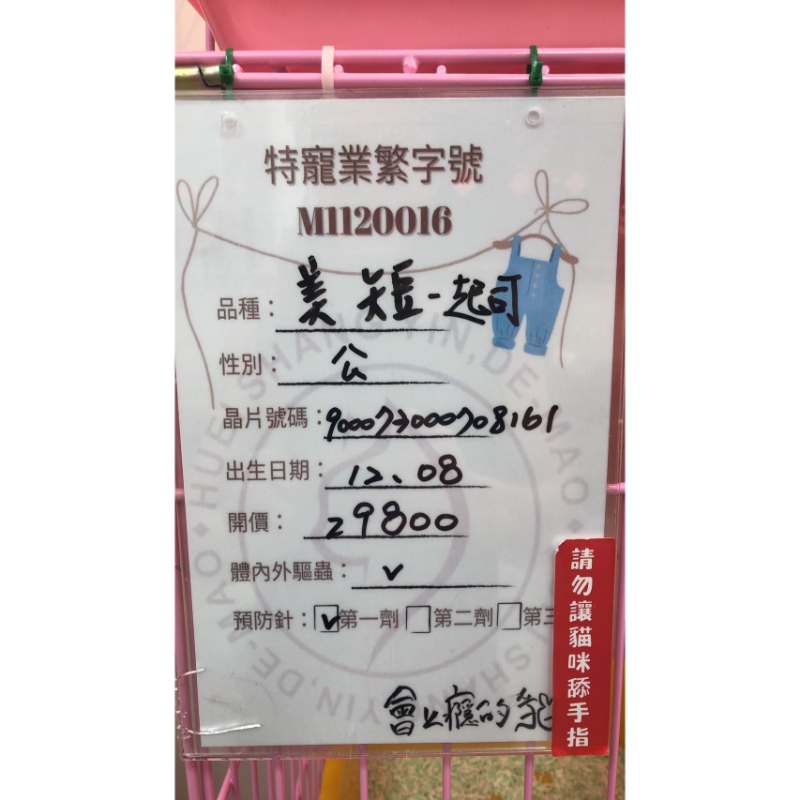 特寵業繁字號
M1120016
品種：美短-起司
性別：公
晶片號碼：900073000708161
出生日期：12、08
開價：29800
體內外驅蟲：v
預防針：☑第一劑☐第二劑☐第三
會上癮的
請勿讓貓咪舔手指
HUEI SHANG YIN, DE-MAO